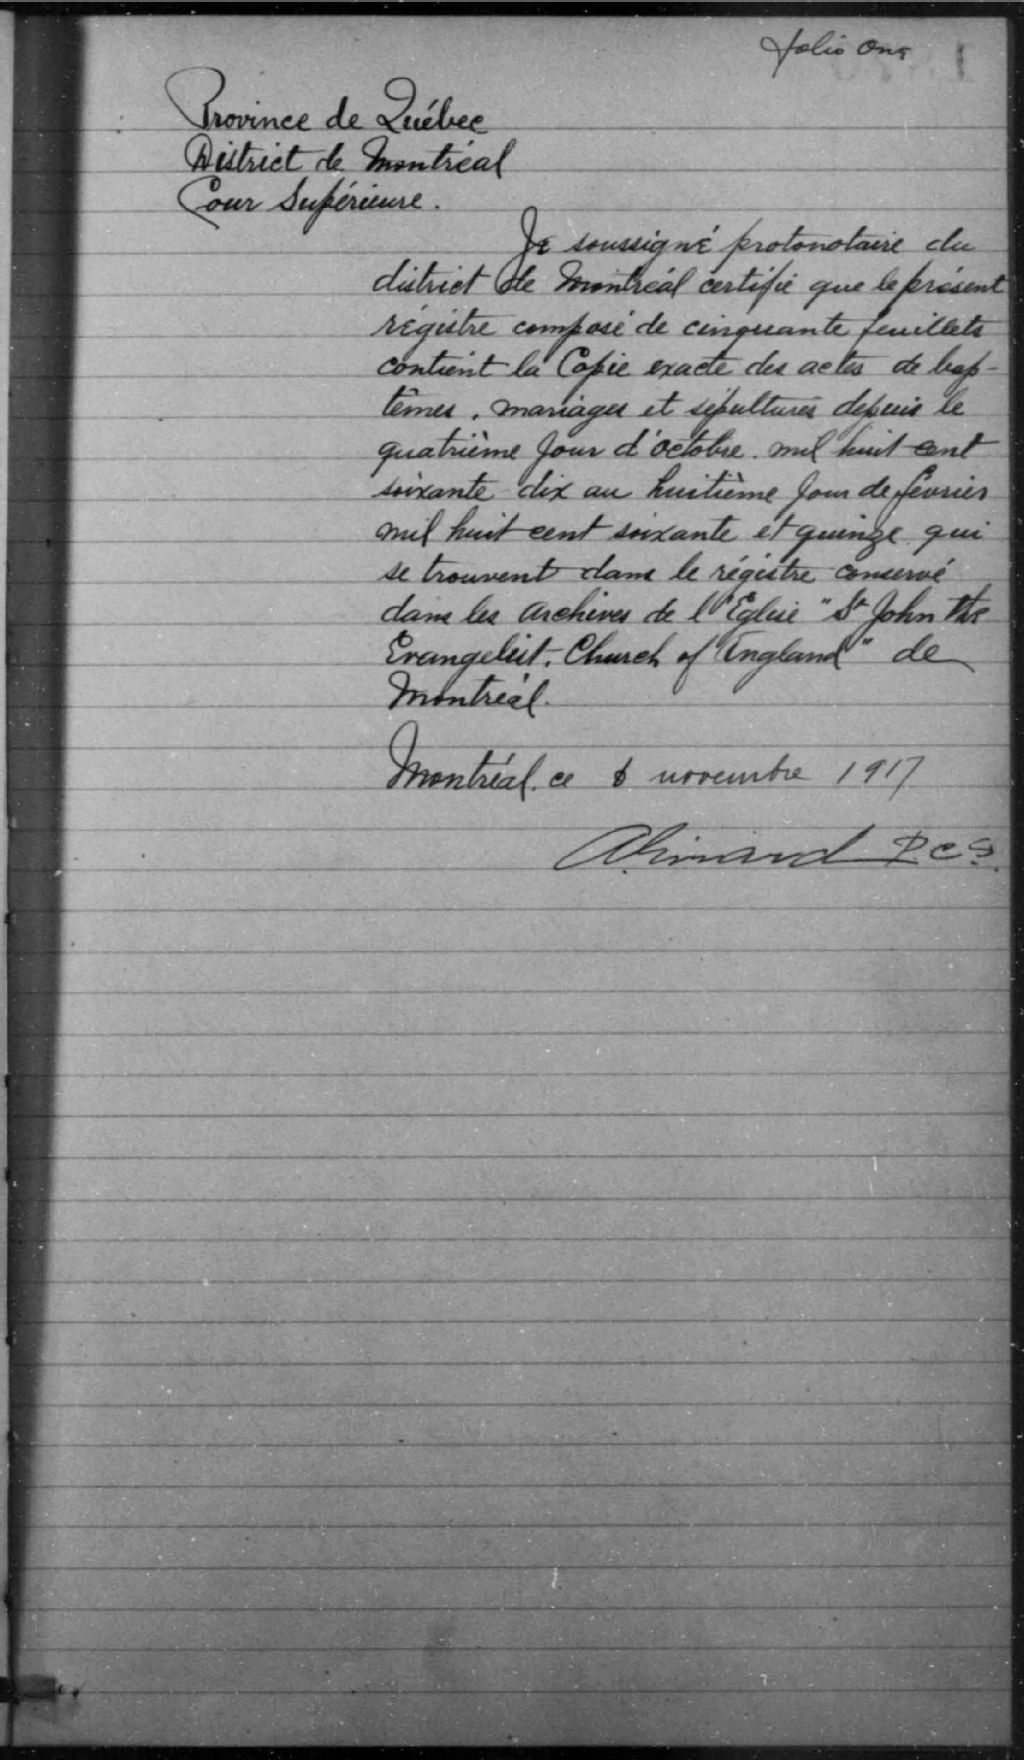 folio one
Province de Québec
District de Montréal
Cour Supérieure.
Je soussigné protonotaire du
district de Montréal certifie que le présent
régistre composé de cinquante feuillets
contient la Copie exacte des actes de bap-
têmes, mariages et sépultures depuis le
quatrième jour d'octobre mil huit cent
soixante dix au huitième jour de février
mil huit cent soixante et quinze qui
se trouvent dans le régistre conservé
dans les archives de l'Eglise "St John the
Evangelist. Church of England" de
Montréal.
Montréal. ce 6 novembre 1917